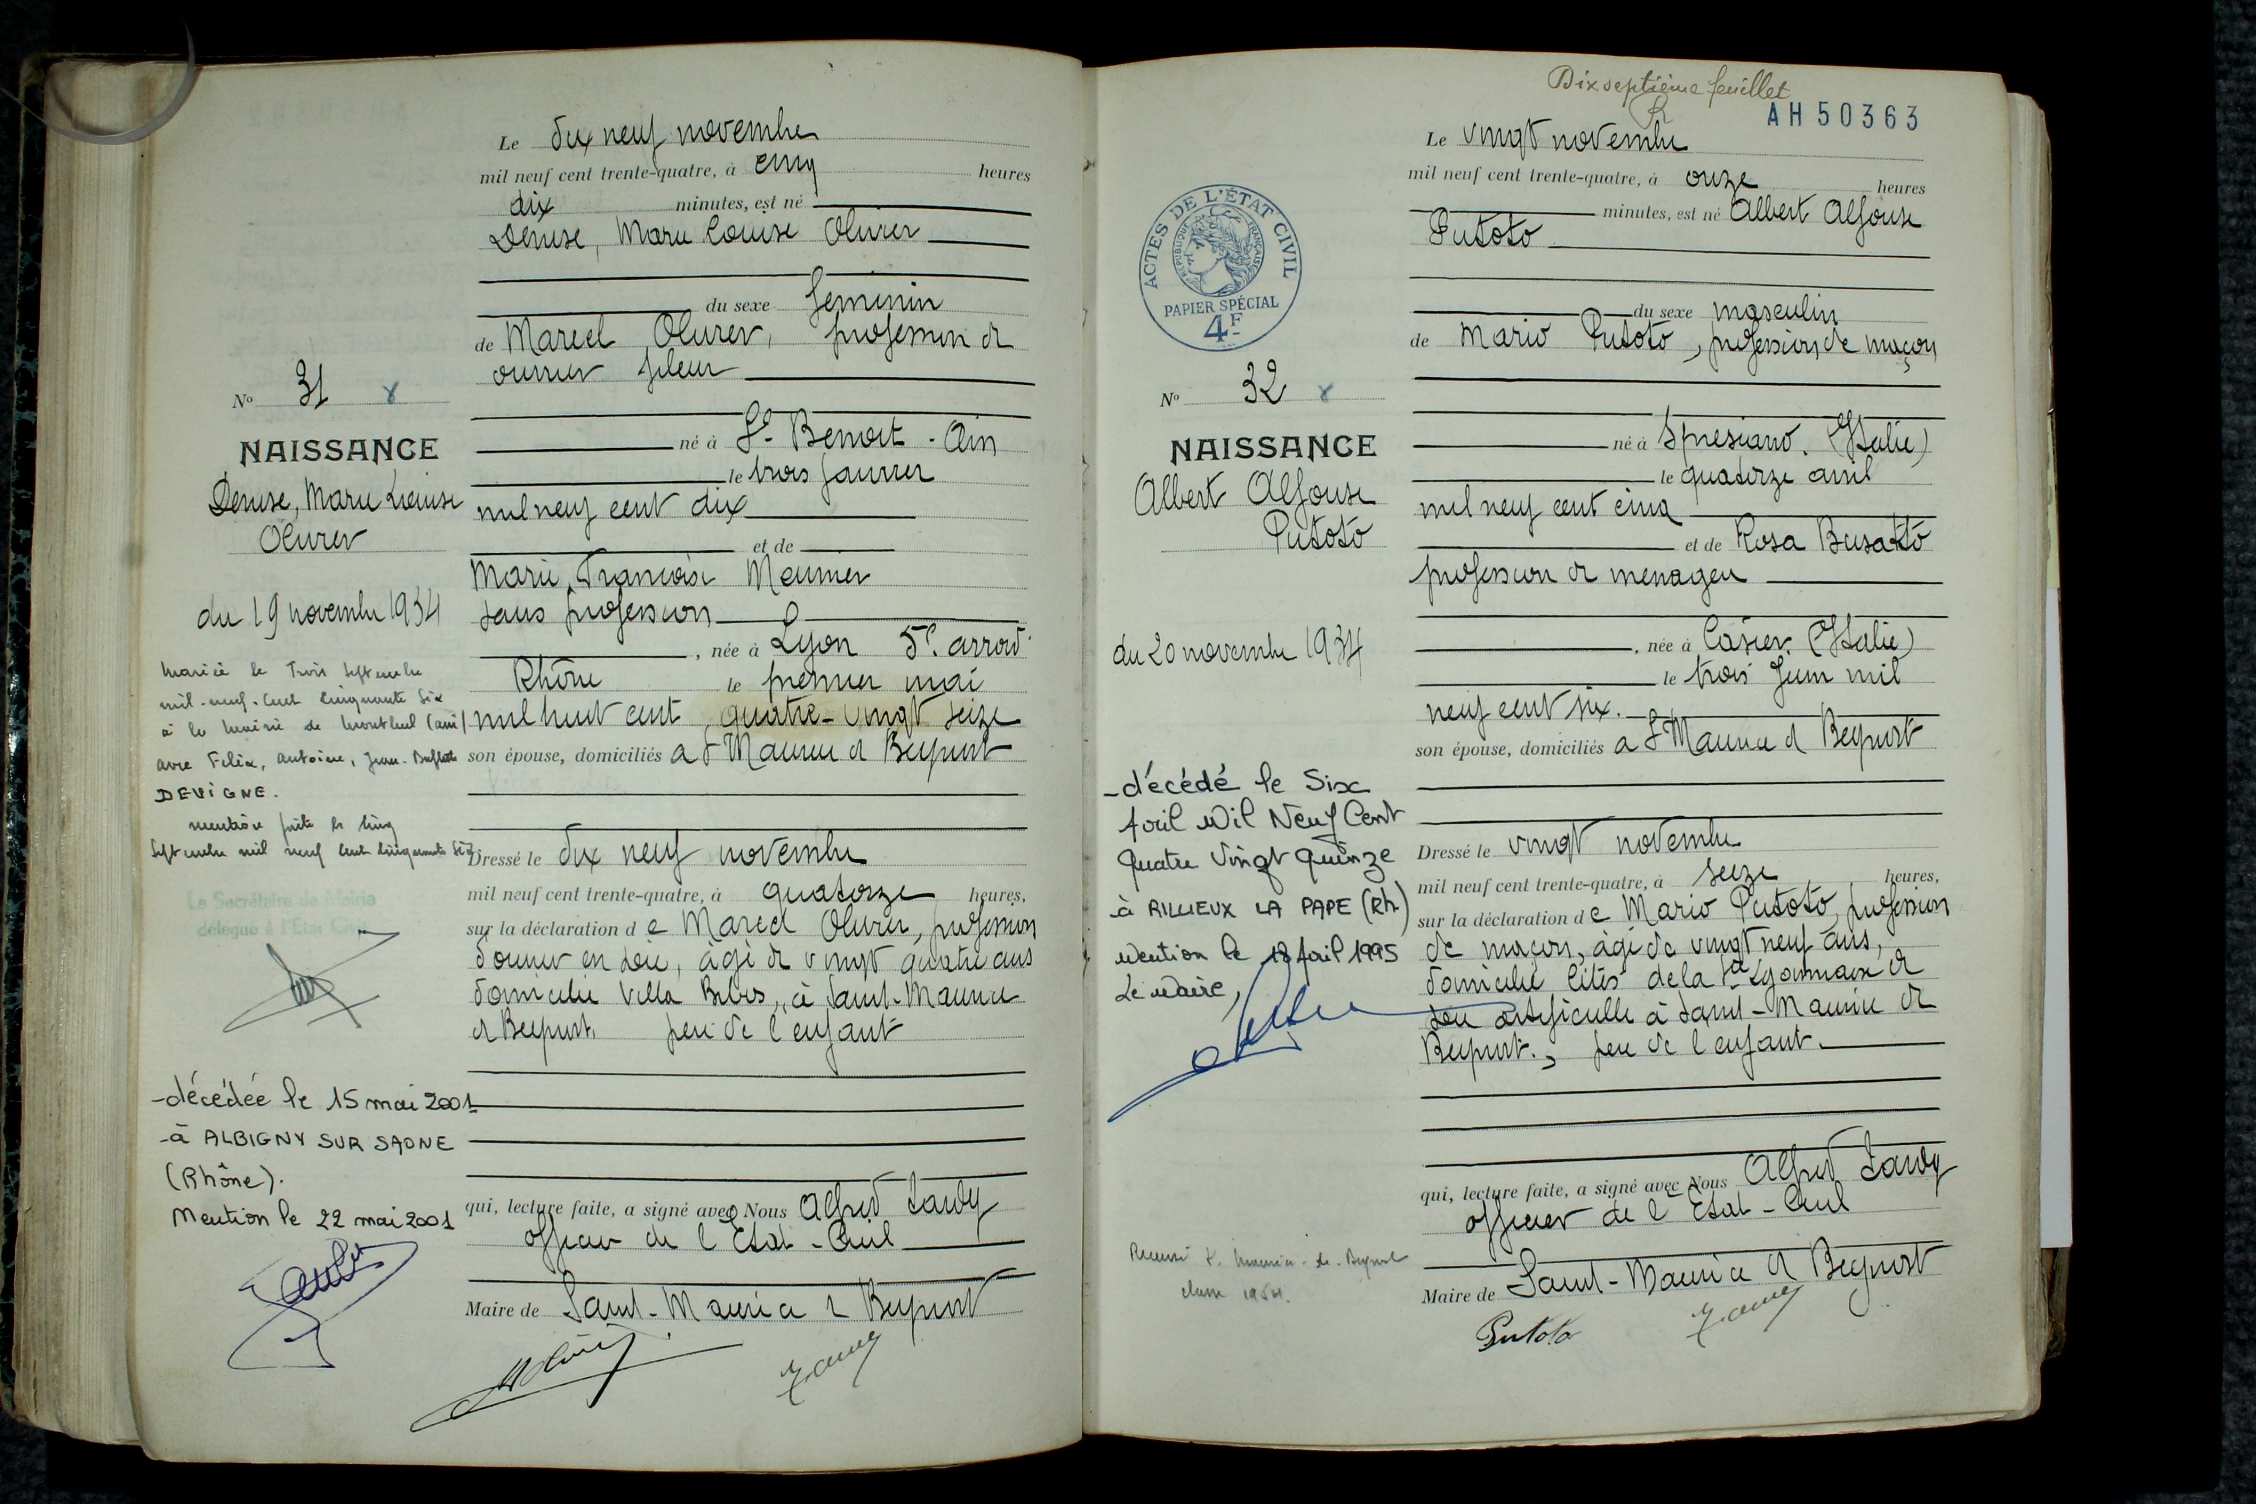 Le dix neuf novembre
mil neuf cent trente-quatre, à cinq heures
dix minutes, est né
Denise, Marie Louise Olivier
du sexe feminin
de Marcel Olivier, profession d
ouvrier fileur
né à St Benoit - Ain
le trois janvier
mil neuf cent dix
et de
Marie, Francoise Meunier
sans profession
, née à Lyon 5e arrond
Rhône le premier mai
mil huit cent quatre-vingt seize
son épouse, domiciliés à St Maurice d Beynost
Dressé le dix neuf novembre
mil neuf cent trente-quatre, à quatorze heures,
sur la déclaration de Marcel Olivier, profession
d'ouvrier en soie, âgé d vingt quatre ans
domicilié Villa à Saint-Maurice
d Beynost. pere de l'enfant
qui, lecture faite, a signé avec Nous Alfred
officier de l'Etat-Civil
Maire de Saint-Maurice d Beynost
No 31
NAISSANCE
Denise, Marie Louise
Olivier
du 19 novembre 1934
Mariée le Trois Septembre
mil-neuf-cent cinquante six
à la Mairie de Montluel (Ain)
avec Felix, Antoine, Jean-
DEVIGNE.
mention faite le cinq
Septembre mil neuf cent cinquante Six
Le Secrétaire de Mairie
délégué à l'Etat Civil
- décédée le 15 mai 2001
- à ALBIGNY SUR SAONE
(Rhône).
Mention le 22 mai 2001
Dix septième feuillet
AH50363
Le vingt novembre
mil neuf cent trente-quatre, à onze heures
minutes, est né Albert Alfonse
Putoto
du sexe masculin
de Mario Putoto, profession de maçon
né à Spresiano. (Italie)
le quatorze avril
mil neuf cent cinq
et de Rosa Busatto
profession d menagere
, née à Casier. (Italie)
le trois Juin mil
neuf cent six.
son épouse, domiciliés à St Maurice d Beynost
Dressé le vingt novembre
mil neuf cent trente-quatre, à seize heures,
sur la déclaration de Mario Putoto, profession
de maçon, âgé de vingt neuf ans,
domicilié Cités de la Sté Lyonnaise d
soie artificielle à Saint-Maurice d
Beynost., pere de l'enfant.
qui, lecture faite, a signé avec Nous Alfred
officier de l'Etat-Civil
Maire de Saint-Maurice d Beynost
Putoto
ACTES DE L'ÉTAT CIVIL
RÉPUBLIQUE FRANÇAISE
PAPIER SPÉCIAL
4F
No 32
NAISSANCE
Albert Alfonse
Putoto
du 20 novembre 1934
- décédé le Six
Avril Mil Neuf Cent
Quatre Vingt Quinze
à RILLIEUX LA PAPE (Rh.)
Mention le 18 Avril 1995
Le Maire,
Recensé St Maurice-de-Beynost
classe 1954.